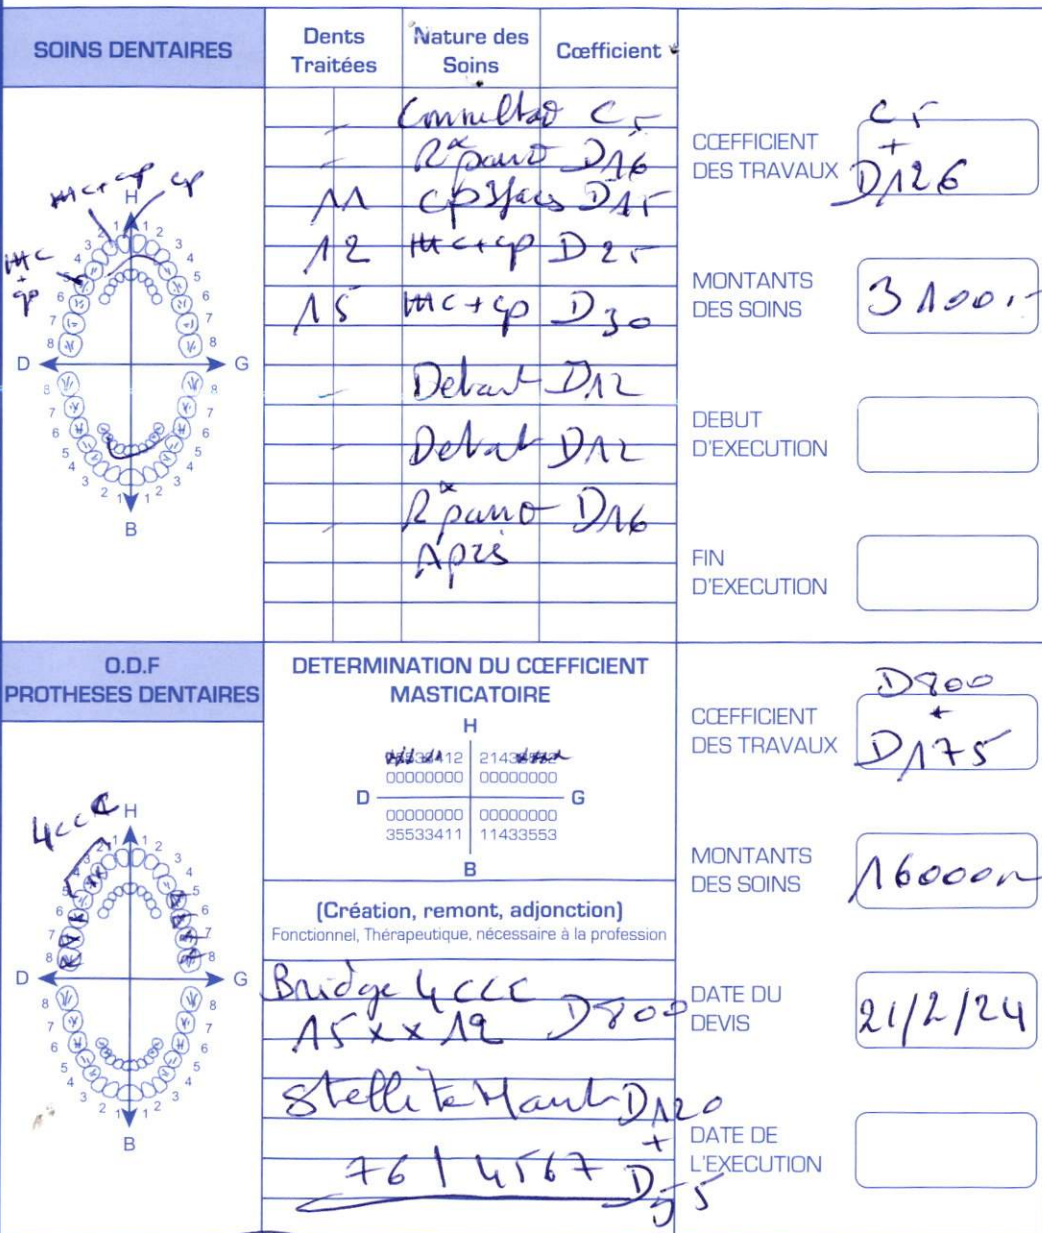 SOINS DENTAIRES
Dents Traitées
Nature des Soins
Cœfficient
Consultat° C5
Rx pano D16
11 cp 3 faces D15
12 mc+cp D25
15 mc+cp D30
Detart D12
Detart D12
Rx pano D16
Après
mc+cp cp
H
mc
+
cp
D
G
B
CŒFFICIENT
DES TRAVAUX
C5
+
D126
MONTANTS
DES SOINS
3100.-
DEBUT
D'EXECUTION
FIN
D'EXECUTION
O.D.F
PROTHESES DENTAIRES
4ccc
H
D
G
B
DETERMINATION DU CŒFFICIENT
MASTICATOIRE
H
00000000 00000000
D
G
00000000 00000000
35533411 11433553
B
(Création, remont, adjonction)
Fonctionnel, Thérapeutique, nécessaire à la profession
Bridge 4ccc
15 x x 12 D800
Stellite Haut D120
+
76 | 4567 D55
CŒFFICIENT
DES TRAVAUX
D800
+
D175
MONTANTS
DES SOINS
16000
DATE DU
DEVIS
21/2/24
DATE DE
L'EXECUTION